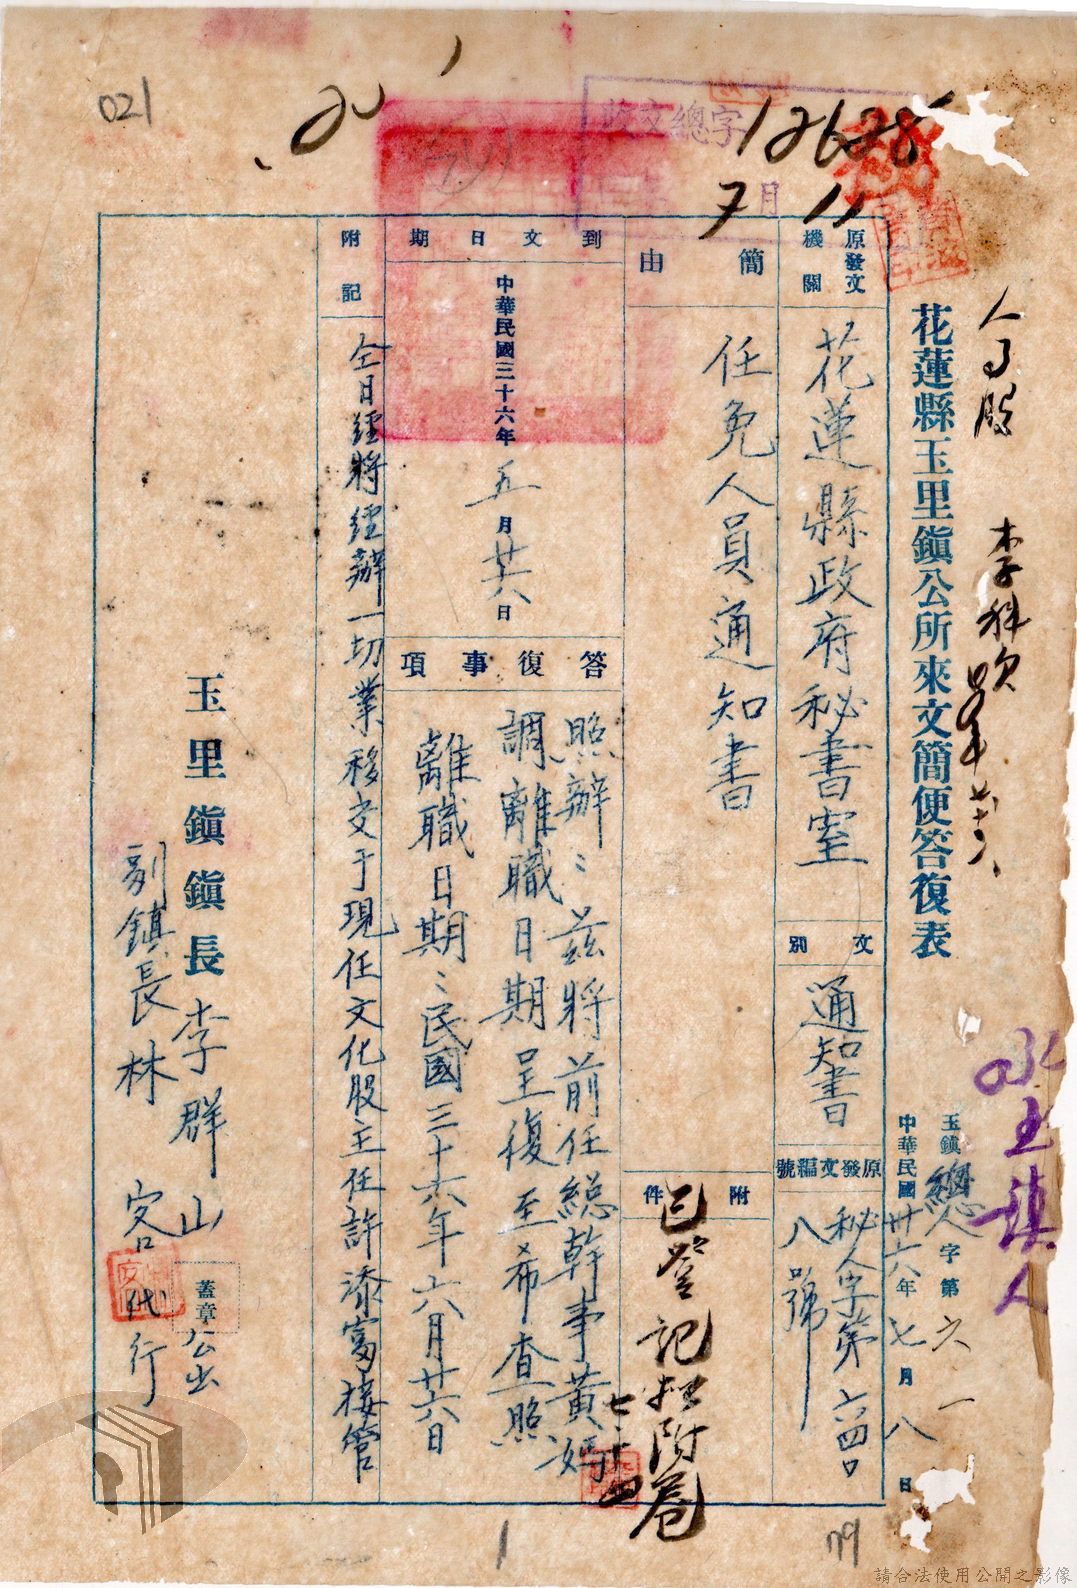 021
收文總字
12628
7月11
人事股
李科員
花蓮縣玉里鎮公所來文簡便答復表
玉鎮總人字第六一
中華民國卅六年七月八日
玉鎮人
原發文機關
花蓮縣政府秘書室
文別
通知書
原發文編號
秘人字第六四〇八號
簡由
任免人員通知書
附件
已登記擬附卷
七、十四
到文日期
中華民國三十六年五月廿六日
答復事項
照辦:茲將前任總幹事黃媽
調離職日期呈復至希查照
離職日期:民國三十六年六月廿六日
附記
仝日經將經辦一切業移交于現任文化股主任許添富接管
玉里鎮鎮長李群山
蓋章
公出
副鎮長林
代行
1
79
請合法使用公開之影像